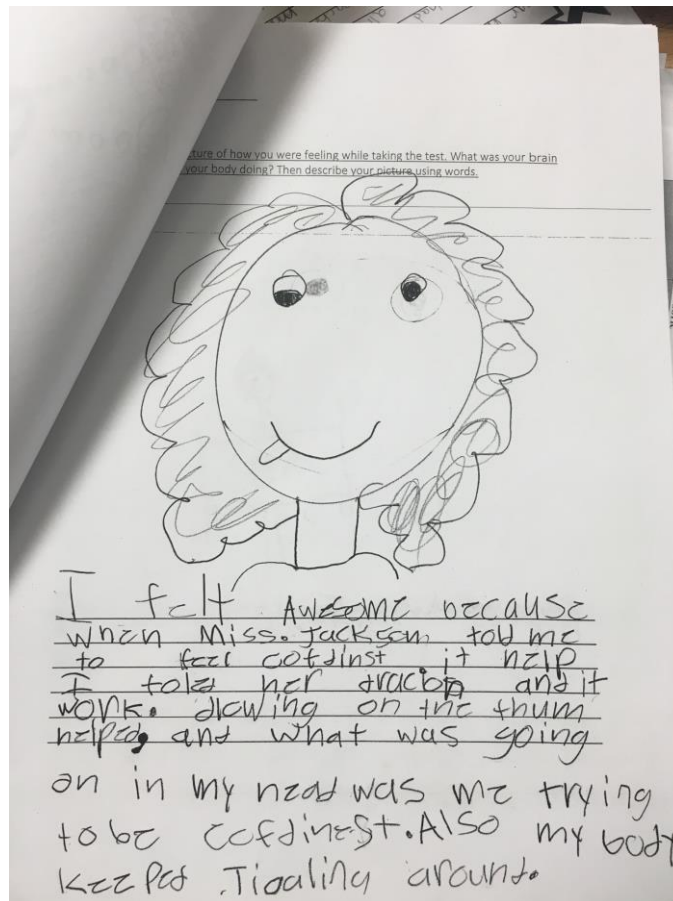 ture of how you were feeling while taking the test. What was your brain
your body doing? Then describe your picture using words.
I felt Awesome because
when Miss. Jackson told me
to feel cofdinst it help
I told her and it
work. drowing on the thum
helped, and what was going
on in my head was me trying
to be cofdinest. Also my body
keeped around.